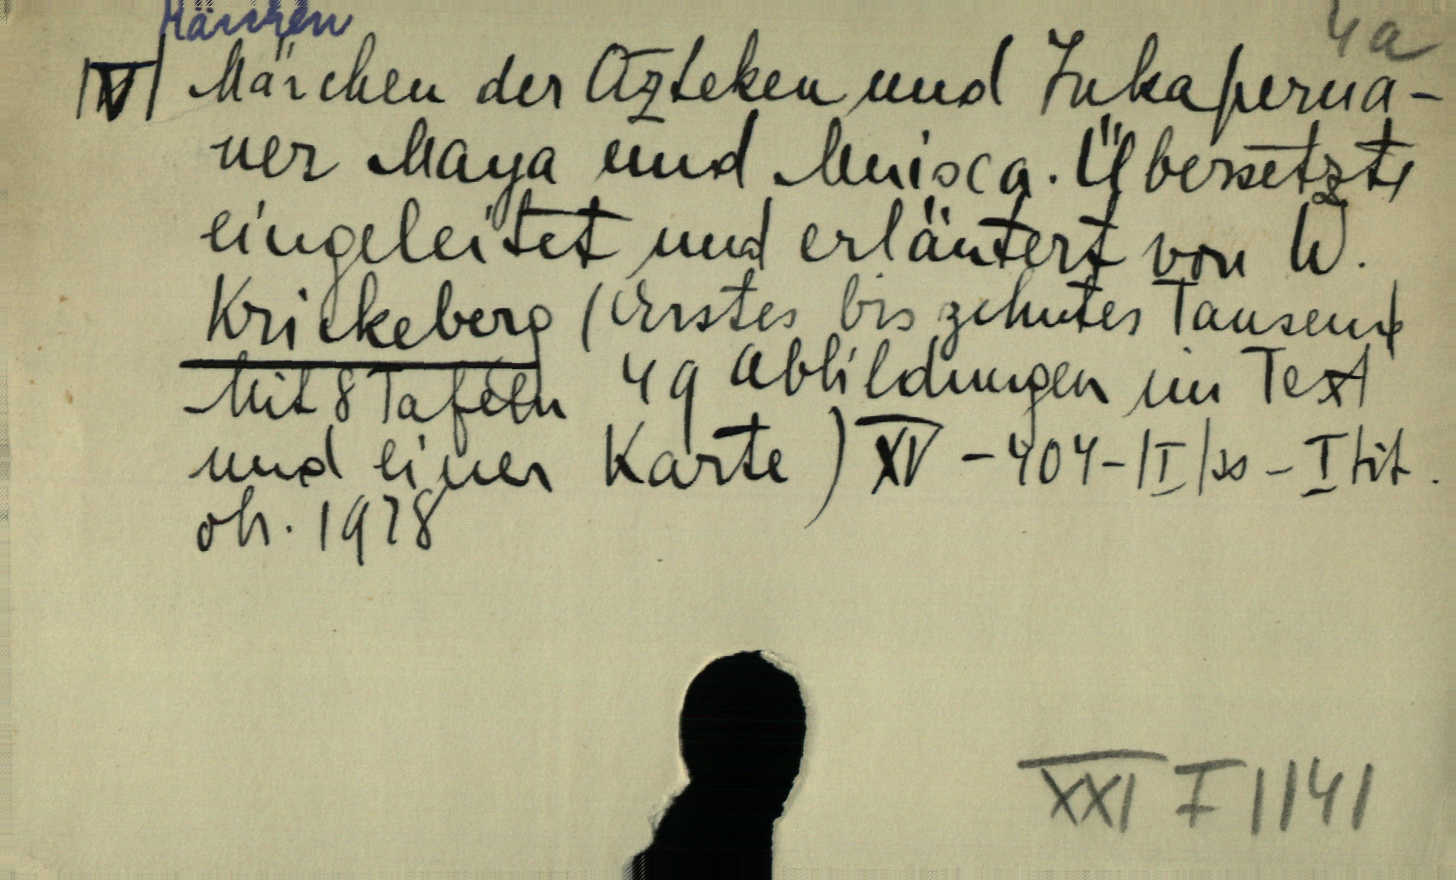 Märchen
4a
|IV| Märchen der Azteken und Inkaperua-
ner Maya und Muisca. Übersetzt,
eingeleitet und erläutert von W.
Krickeberg (Erstes bis zehntes Tausend
Mit 8 Tafeln 49 Abbildungen im Text
und einer Karte) XV - 404 - |I| ss - I tit.
ok. 1928
XXI I 1141